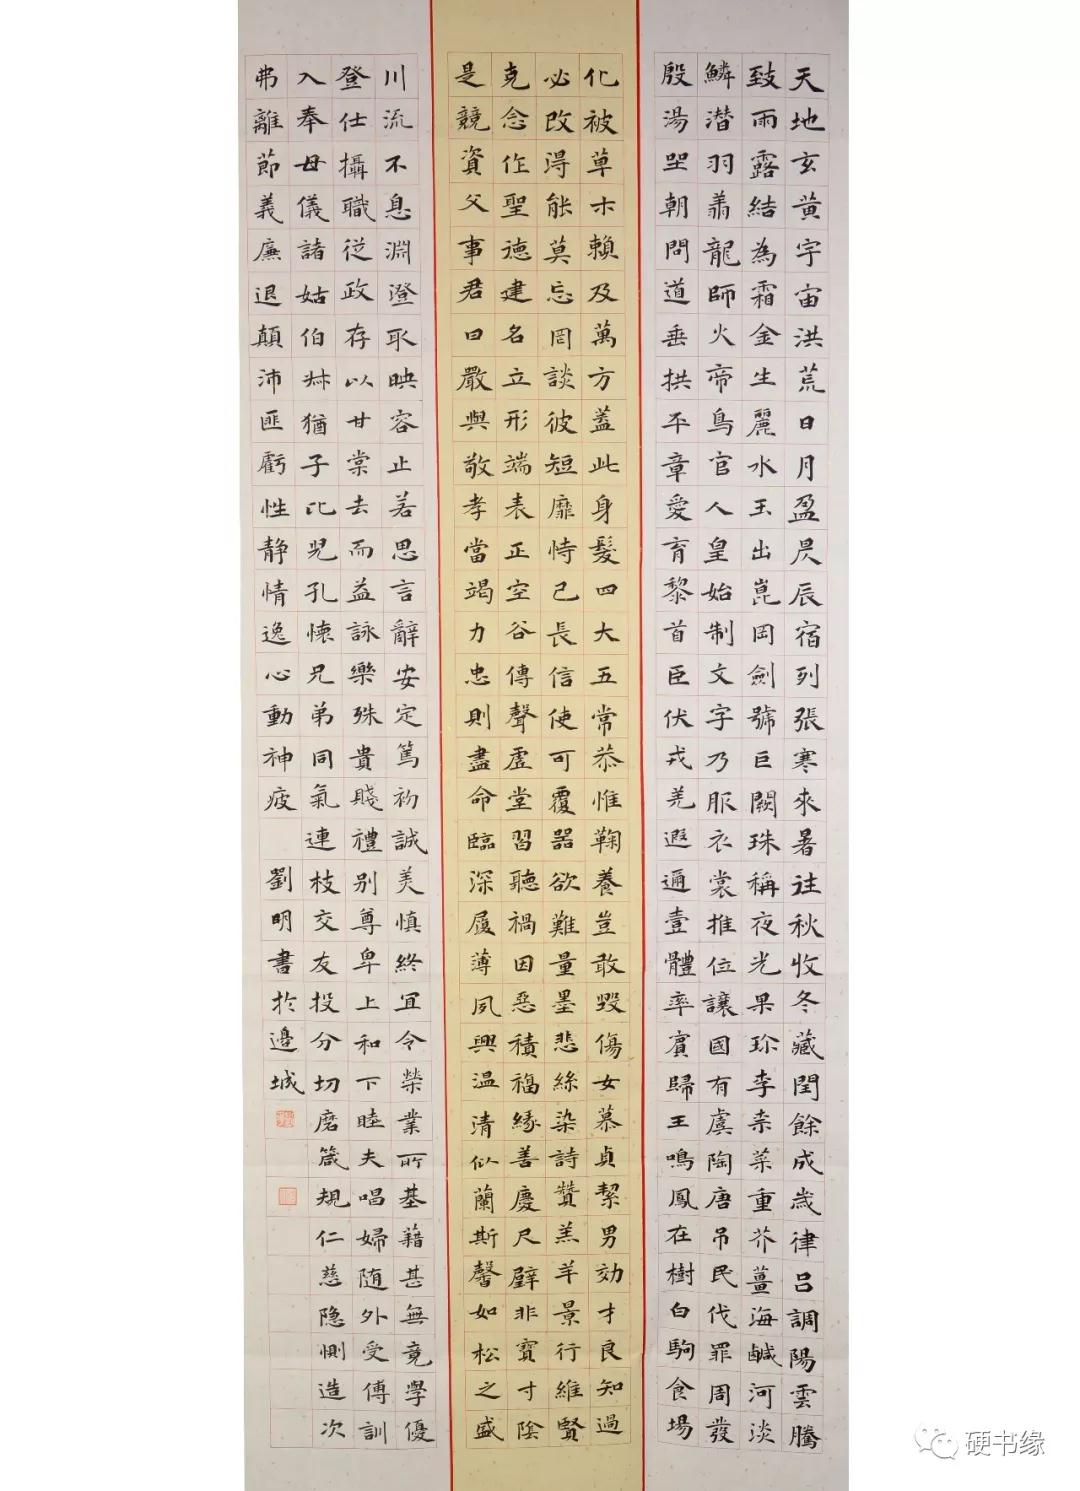 天地玄黄宇宙洪荒日月盈昃辰宿列張寒来暑往秋收冬藏閏餘成歲律吕調陽雲騰
致雨露結為霜金生麗水玉出崑岡劍號巨闕珠稱夜光果珍李柰菜重芥薑海鹹河淡
鱗潜羽翔龍師火帝鳥官人皇始制文字乃服衣裳推位讓國有虞陶唐吊民伐罪周發
殷湯坐朝問道垂拱平章愛育黎首臣伏戎羌遐邇壹體率賓歸王鳴鳳在樹白駒食場
化被草木賴及萬方蓋此身髮四大五常恭惟鞠養豈敢毀傷女慕貞絜男効才良知過
必改得能莫忘罔談彼短靡恃己長信使可覆器欲難量墨悲絲染詩贊羔羊景行維賢
克念作聖德建名立形端表正空谷傳聲虛堂習聽禍因惡積福緣善慶尺璧非寶寸陰
是競資父事君曰嚴與敬孝當竭力忠則盡命臨深履薄夙興温清似蘭斯馨如松之盛
川流不息淵澄取映容止若思言辭安定篤初誠美慎終宜令榮業所基藉甚無竟學優
登仕攝職從政存以甘棠去而益詠樂殊貴賤禮别尊卑上和下睦夫唱婦随外受傅訓
入奉母儀諸姑伯叔猶子比兒孔懷兄弟同氣連枝交友投分切磨箴規仁慈隐惻造次
弗離節義廉退顛沛匪虧性静情逸心動神疲 劉明書於邊城
硬书缘